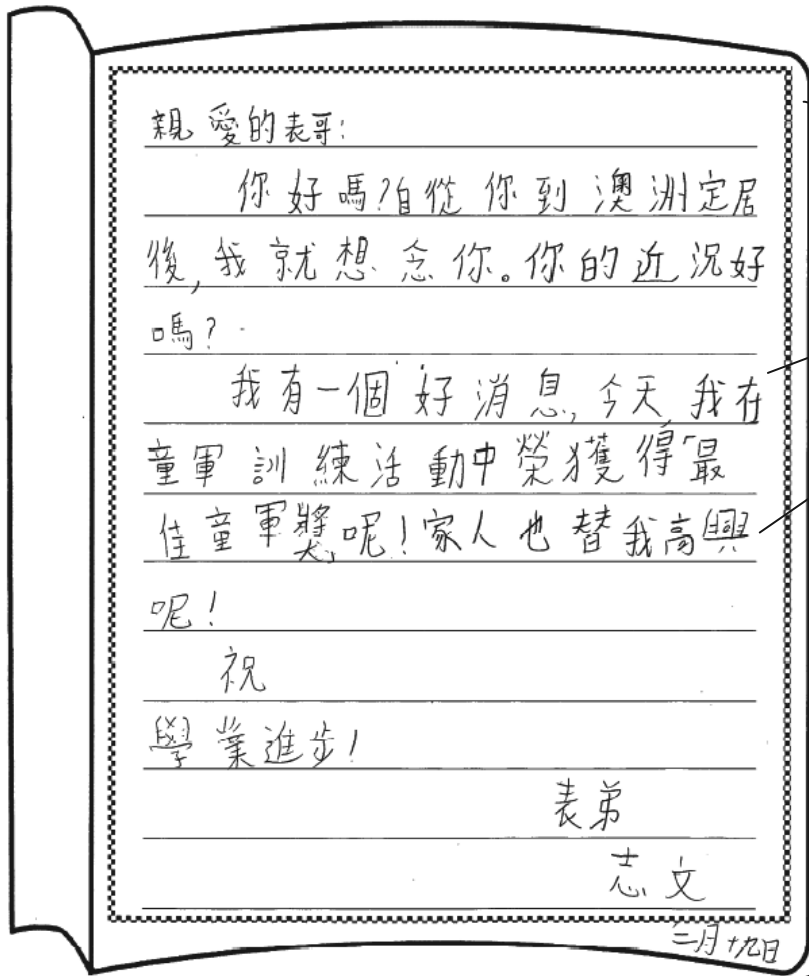 親愛的表哥:
你好嗎?自從你到澳洲定居
後,我就想念你。你的近況好
嗎?
我有一個好消息,今天,我在
童軍訓練活動中榮獲得「最
佳童軍獎」呢!家人也替我高興
呢!
祝
學業進步!
表弟
志文
二月十九日